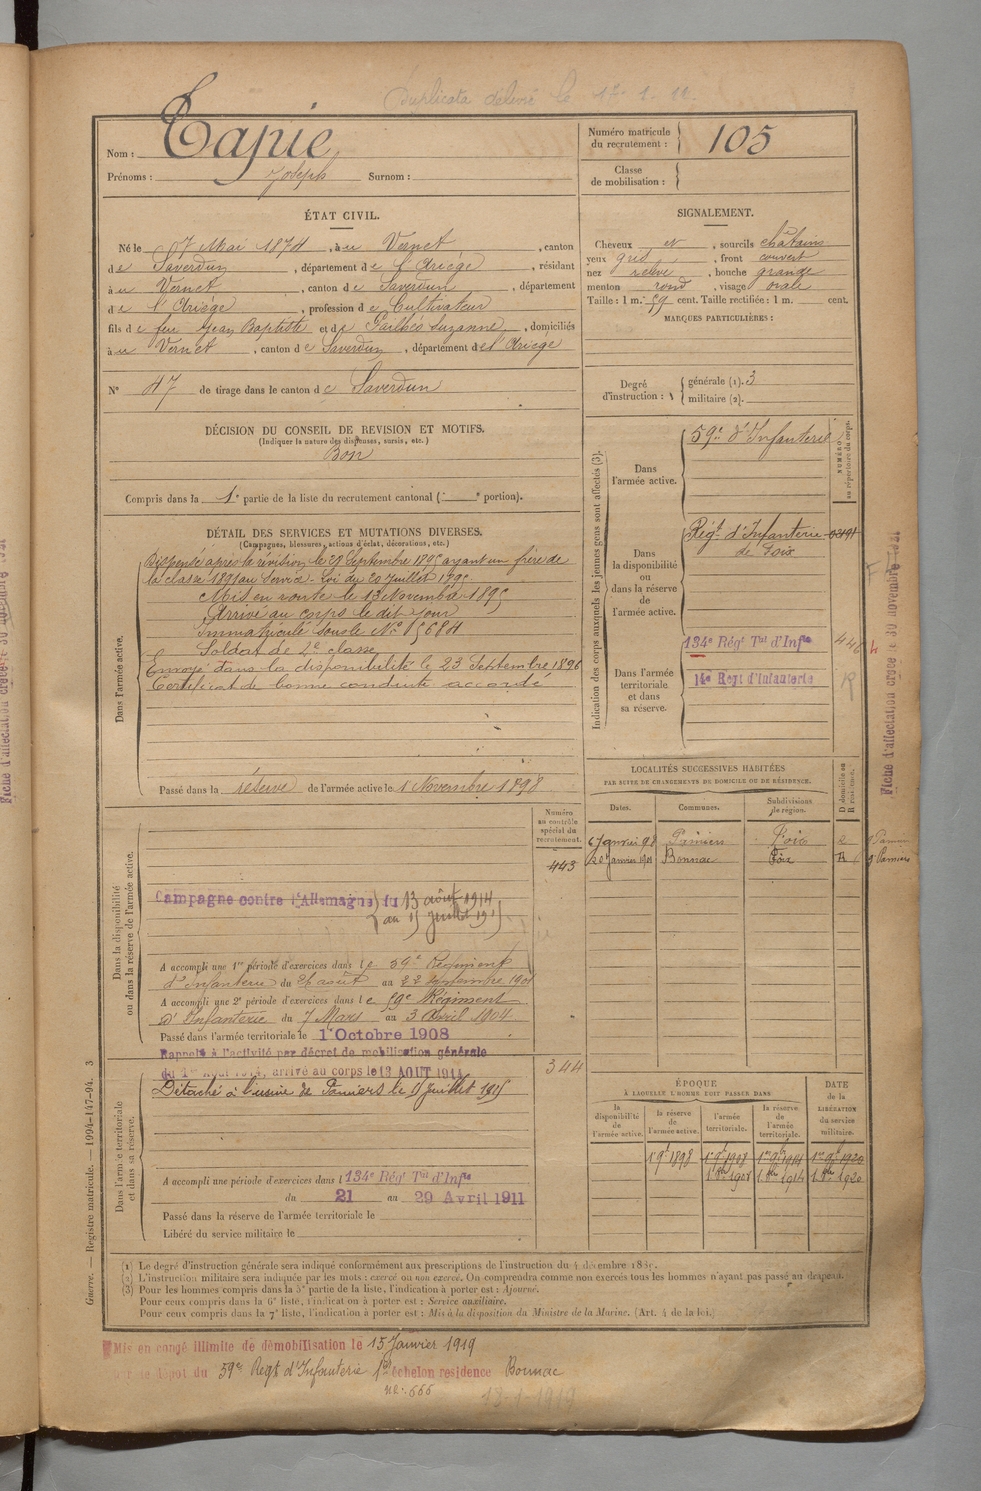 Duplicata délivré le
Nom : Tapie
Prénoms : Joseph Surnom :
Numéro matricule du recrutement : 105
Classe de mobilisation :
ÉTAT CIVIL.
Né le 7 Mai 1874, à u Vernet, canton
de Saverdun, département de l'Ariège, résidant
à u Vernet, canton de Saverdun, département
de l'Ariège, profession de Cultivateur
fils de feu Jean Baptiste et de Suzanne, domiciliés
à u Vernet, canton de Saverdun, département de l'Ariège
N° 47 de tirage dans le canton de Saverdun
SIGNALEMENT.
Cheveux et, sourcils châtains
yeux gris, front couvert
nez relevé, bouche grande
menton rond, visage ovale
Taille : 1 m. 59 cent. Taille rectifiée : 1 m. cent.
MARQUES PARTICULIÈRES :
Degré d'instruction : générale (1). 3
militaire (2).
DÉCISION DU CONSEIL DE REVISION ET MOTIFS.
(Indiquer la nature des dispenses, sursis, etc.)
Bon
Compris dans la 1e partie de la liste du recrutement cantonal ( e portion).
DÉTAIL DES SERVICES ET MUTATIONS DIVERSES.
(Campagnes, blessures, actions d'éclat, décorations, etc.)
Dans l'armée active.
Dispensé après la révision le 29 Septembre 1895 ayant un frère de
la classe 1891 au Service - Loi du 20 Juillet 1895
Mis en route le 13 Novembre 1895
Arrivé au corps le dit jour
Immatriculé sous le N°
Soldat de 2e classe
Envoyé dans la disponibilité le 23 Septembre 1896
Certificat de bonne conduite accordé
Passé dans la réserve de l'armée active le 1 Novembre 1898
Indication des corps auxquels les jeunes gens sont affectés (3).
NUMÉRO au répertoire du corps.
Dans l'armée active.
59e d'Infanterie
Dans la disponibilité ou dans la réserve de l'armée active.
Régt d'Infanterie
de Foix
Dans l'armée territoriale et dans sa réserve.
134e Régt Tal d'Infie
14e Regt d'Infanterie
Fiche d'affectation créée le 30 novembre 1931
LOCALITÉS SUCCESSIVES HABITÉES
PAR SUITE DE CHANGEMENTS DE DOMICILE OU DE RÉSIDENCE.
Dates. Communes. Subdivisions de région. D domicile ou R résidence.
6 Janvier 98 Pamiers Foix
20 Janvier 1901 Bonnac Foix R
Dans la disponibilité ou dans la réserve de l'armée active.
Numéro au contrôle spécial du recrutement.
443
Campagne contre l'Allemagne du 13 août 1914
au 15 Juillet 1915
A accompli une 1re période d'exercices dans le 59e Régiment
d'Infanterie du 26 août au 22 septembre 1901
A accompli une 2e période d'exercices dans le 59e Régiment
d'Infanterie du 7 Mars au 3 Avril 1904
Passé dans l'armée territoriale le 1er Octobre 1908
Dans l'armée territoriale et dans sa réserve.
Rappelé à l'activité par décret de mobilisation générale
du 1er Aout 1914, arrivé au corps le 13 AOUT 1914
344
Détaché à l'usine de Pamiers le 15 Juillet 1915
A accompli une période d'exercices dans l 134e Régt Tal d'Infie
du 21 au 29 Avril 1911
Passé dans la réserve de l'armée territoriale le
Libéré du service militaire le
ÉPOQUE
À LAQUELLE L'HOMME DOIT PASSER DANS
la disponibilité de l'armée active. la réserve de l'armée active. l'armée territoriale. la réserve de l'armée territoriale.
DATE de la LIBÉRATION du service militaire.
1 9 1898 1 9 1908 1er 9 1914 1er 9 1920
1 1908 1 1914 1 1920
Guerre. — Registre matricule. — 1994-147-94. 3
(1) Le degré d'instruction générale sera indiqué conformément aux prescriptions de l'instruction du 4 décembre
(2) L'instruction militaire sera indiquée par les mots : exercé ou non exercé. On comprendra comme non exercés tous les hommes n'ayant pas passé au drapeau.
(3) Pour les hommes compris dans la 5e partie de la liste, l'indication à porter est : Ajourné.
Pour ceux compris dans la 6e liste, l'indication à porter est : Service auxiliaire.
Pour ceux compris dans la 7e liste, l'indication à porter est : Mis à la disposition du Ministre de la Marine. (Art. 4 de la loi.)
Mis en congé illimité de démobilisation le 15 Janvier 1919
par le Dépot du 59e Regt d'Infanterie 1er échelon residence Bonnac
no. 666
13-1-1919